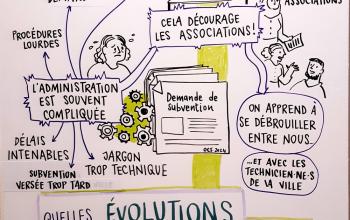 ASSOCIATIONS
CELA DÉCOURAGE
LES ASSOCIATIONS!
PROCÉDURES
LOURDES
L'ADMINISTRATION
EST SOUVENT
COMPLIQUÉE
Demande de
subvention
OCT 2024
DÉLAIS
INTENABLES
JARGON
TROP TECHNIQUE
SUBVENTION
VERSÉE TROP TARD
ON APPREND À
SE DÉBROUILLER
ENTRE NOUS.
...ET AVEC LES
TECHNICIEN·NE·S
DE LA VILLE
QUELLES ÉVOLUTIONS